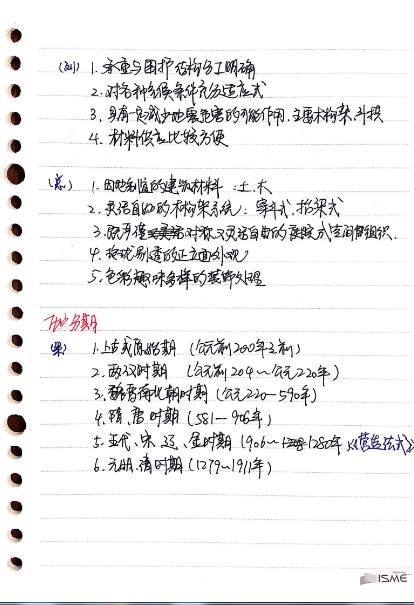 (刘) 1. 承重与围护结构分工明确
2. 对各种气候条件充分适应式
3. 具有一定减少地震危害的可能作用.主要木构架.斗拱
4. 材料供应比较方便
1. 因地制宜的建筑材料:土.木
2. 灵活自如的木构架系统:穿斗式.抬梁式
3. 既严谨对称又灵活自由的庭院式空间组织.
4. 的正立面外观
5. 色彩多样的装饰处理
分期
1. 上古或原始期 (公元前2000年之前)
2. 两汉时期 (公元前204~公元220年)
3. 魏晋南北朝时期 (公元220—590年)
4. 隋、唐时期 (581—906年)
5. 五代、宋、辽、金时期 (906~1280年)《营造法式》
6. 元明.清时期 (1279~1911年)
ISME